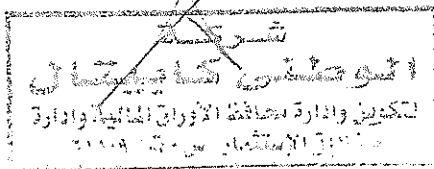 شركة
الوطنى كابيتال
لتكوين وادارة محافظ الأوراق المالية وادارة
صناديق الإستثمار س.ت: